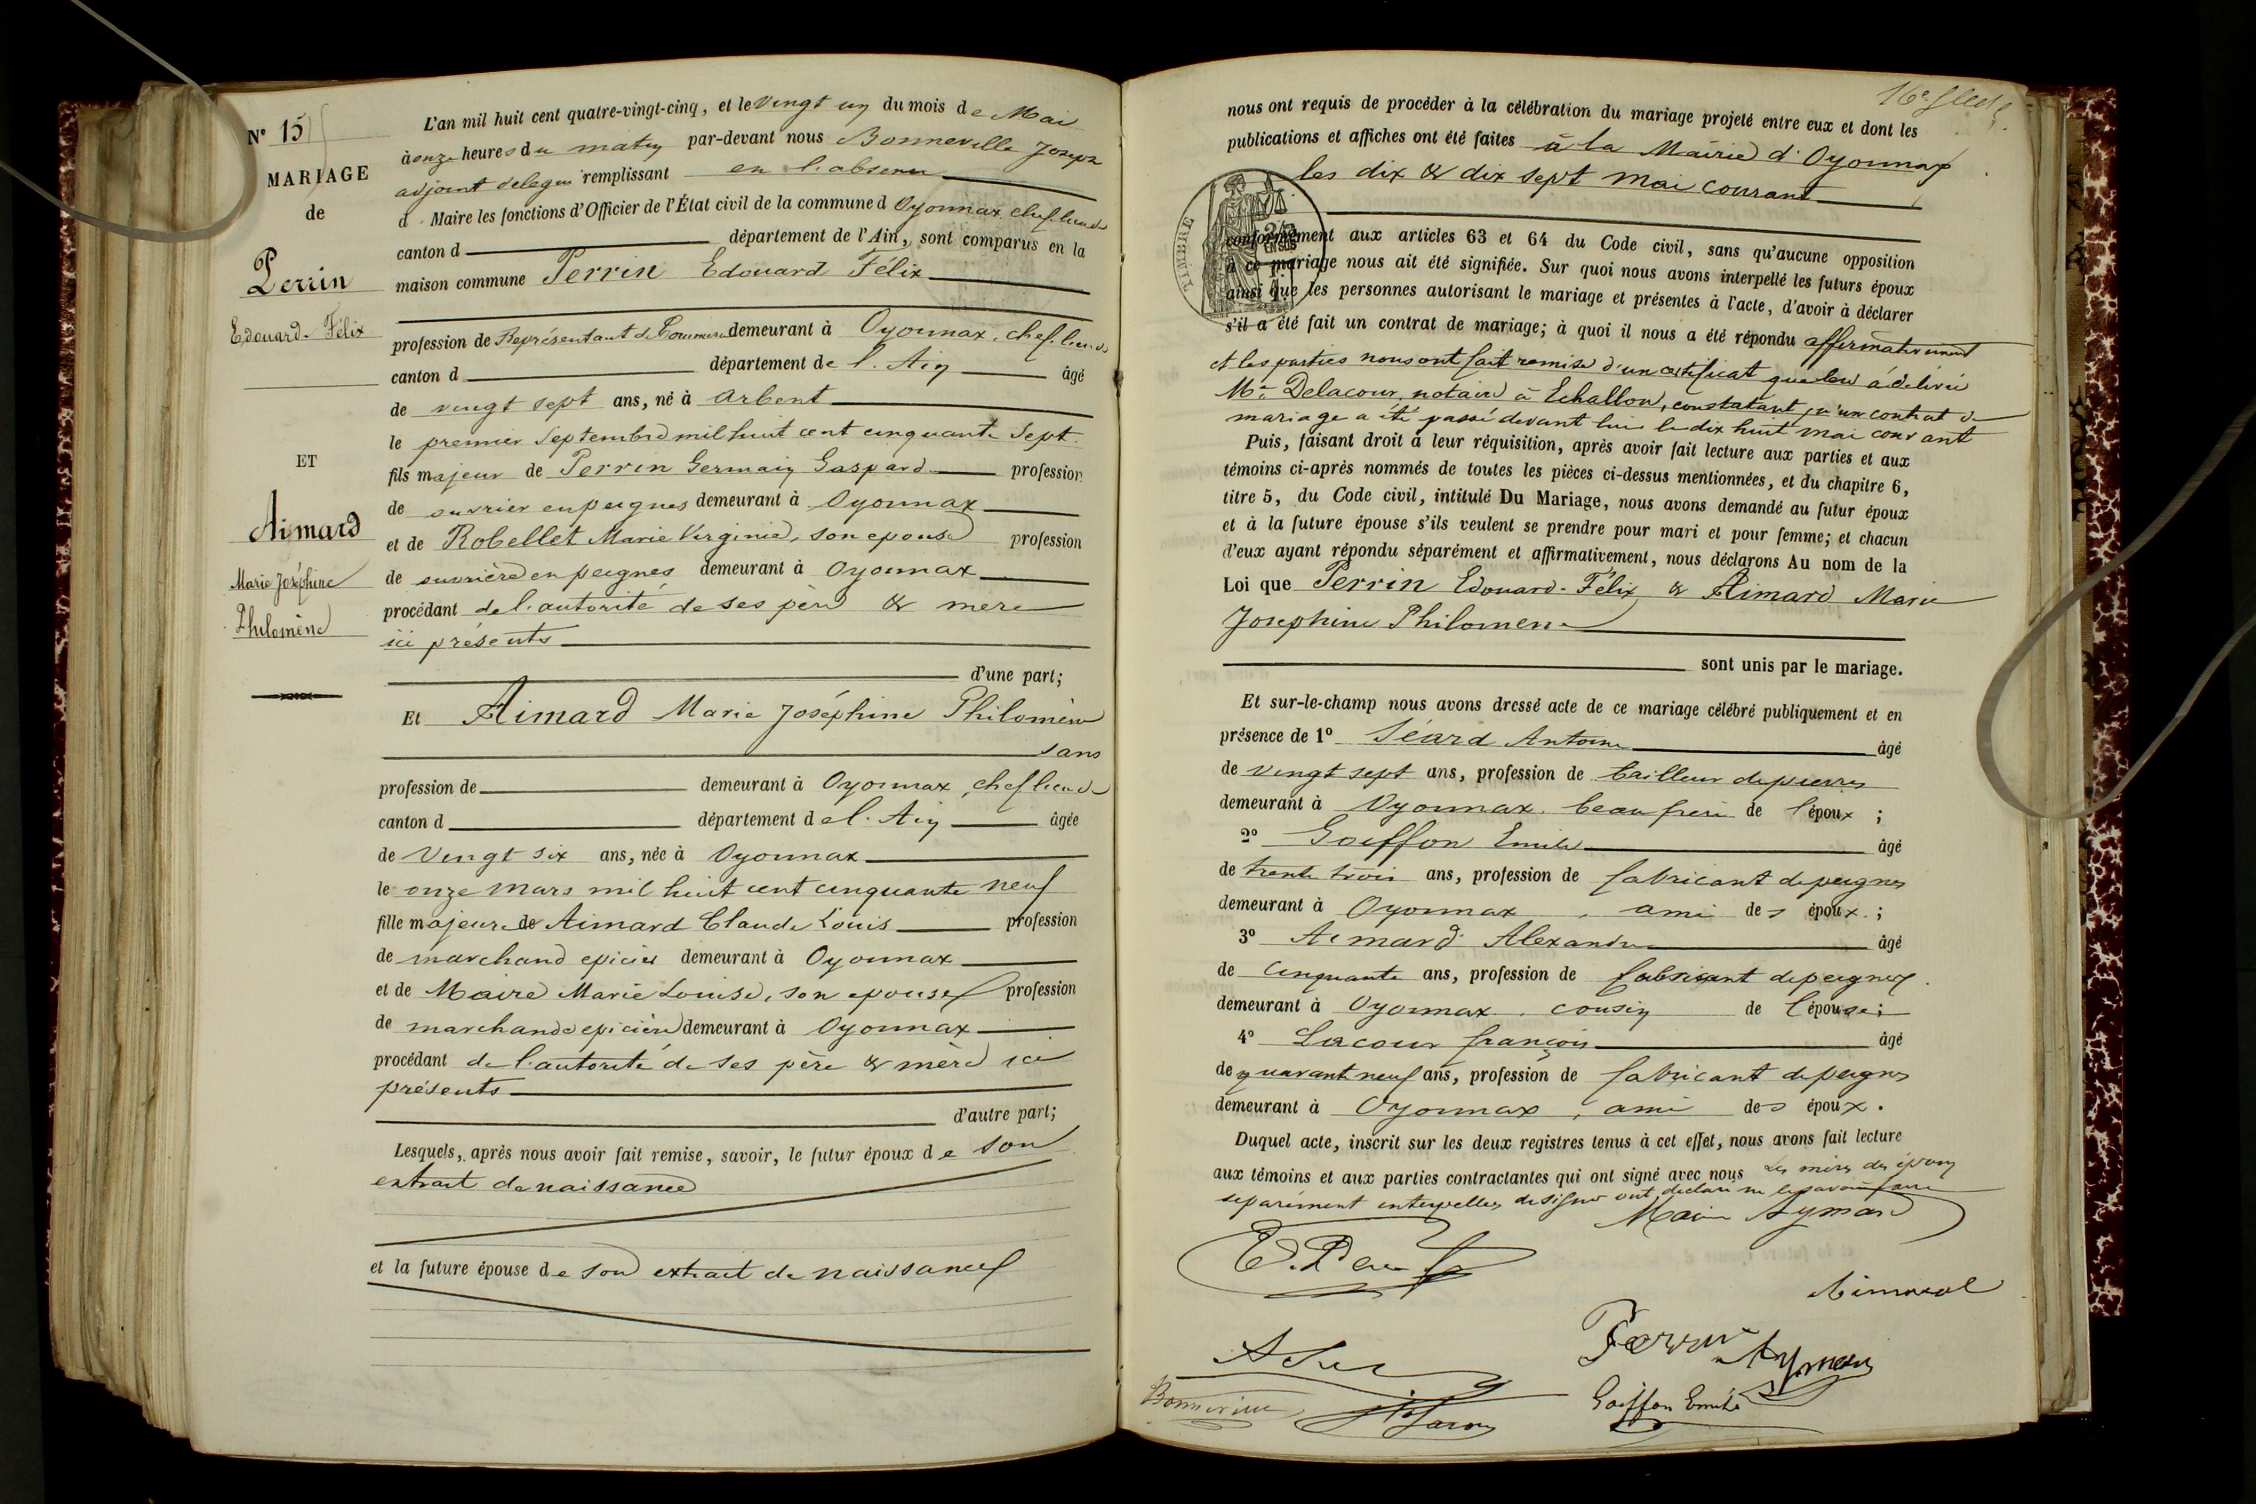 N° 15
MARIAGE
de
Perrin
Edouard-Félix
ET
Aimard
Marie Joséphine
Philomène
L'an mil huit cent quatre-vingt-cinq, et le vingt un du mois de Mai
à onze heures du matin par-devant nous Bonneville Joseph
adjoint delegué remplissant en l'absence
d Maire les fonctions d'Officier de l'État civil de la commune d Oyonnax, chef lieu de
canton d département de l'Ain, sont comparus en la
maison commune Perrin Edouard Félix
profession de Représentant de Commerce demeurant à Oyonnax, chef lieu de
canton d département de l'Ain âgé
de vingt sept ans, né à Arbent
le premier Septembre mil huit cent cinquante Sept
fils majeur de Perrin Germain Gaspard profession
de ouvrier en peignes demeurant à Oyonnax
et de Robellet Marie Virginie, son epouse profession
de ouvrière en peignes demeurant à Oyonnax
procédant de l'autorité de ses père & mere
ici présents
d'une part;
Et Aimard Marie Joséphine Philomène
sans
profession de demeurant à Oyonnax, chef lieu de
canton d département de l'Ain âgée
de Vingt six ans, née à Oyonnax
le onze Mars mil huit cent cinquante neuf
fille majeure de Aimard Claude Louis profession
de marchand epicier demeurant à Oyonnax
et de Maire Marie Louise, son epouse profession
de marchande epicière demeurant à Oyonnax
procédant de l'autorité de ses père & mère ici
présents
d'autre part;
Lesquels, après nous avoir fait remise, savoir, le futur époux de son
extrait de naissance
et la future épouse de son extrait de naissance
nous ont requis de procéder à la célébration du mariage projeté entre eux et dont les
publications et affiches ont été faites à la Mairie d'Oyonnax
les dix & dix sept mai courant
TIMBRE
conformément aux articles 63 et 64 du Code civil, sans qu'aucune opposition
à ce mariage nous ait été signifiée. Sur quoi nous avons interpellé les futurs époux
ainsi que les personnes autorisant le mariage et présentes à l'acte, d'avoir à déclarer
s'il a été fait un contrat de mariage; à quoi il nous a été répondu affirmativement
et les parties nous ont fait remise d'un certificat que leur a délivré
Me Delacour, notaire à Echallon, constatant qu'un contrat de
mariage a été passé devant lui le dix huit mai courant
Puis, faisant droit à leur réquisition, après avoir fait lecture aux parties et aux
témoins ci-après nommés de toutes les pièces ci-dessus mentionnées, et du chapitre 6,
titre 5, du Code civil, intitulé Du Mariage, nous avons demandé au futur époux
et à la future épouse s'ils veulent se prendre pour mari et pour femme; et chacun
d'eux ayant répondu séparément et affirmativement, nous déclarons Au nom de la
Loi que Perrin Edouard-Félix & Aimard Marie
Josephine Philomene
sont unis par le mariage.
Et sur-le-champ nous avons dressé acte de ce mariage célébré publiquement et en
présence de 1° Séard Antoine âgé
de vingt sept ans, profession de tailleur de pierres
demeurant à Oyonnax, beau frère de l'époux ;
2° Goiffon Emile âgé
de trente trois ans, profession de fabricant de peignes
demeurant à Oyonnax, ami des époux ;
3° Aimard Alexandre âgé
de Cinquante ans, profession de fabricant de peignes
demeurant à Oyonnax, cousin de l'épouse;
4° Lacour françois âgé
de quarante neuf ans, profession de fabricant de peignes
demeurant à Oyonnax, ami des époux.
Duquel acte, inscrit sur les deux registres tenus à cet effet, nous avons fait lecture
aux témoins et aux parties contractantes qui ont signé avec nous Les mères des époux
separément interpellées de signer ont declaré ne le savoir faire
Marie Aymard
Aimard
Perrin
Goiffon Emile
Bonneville